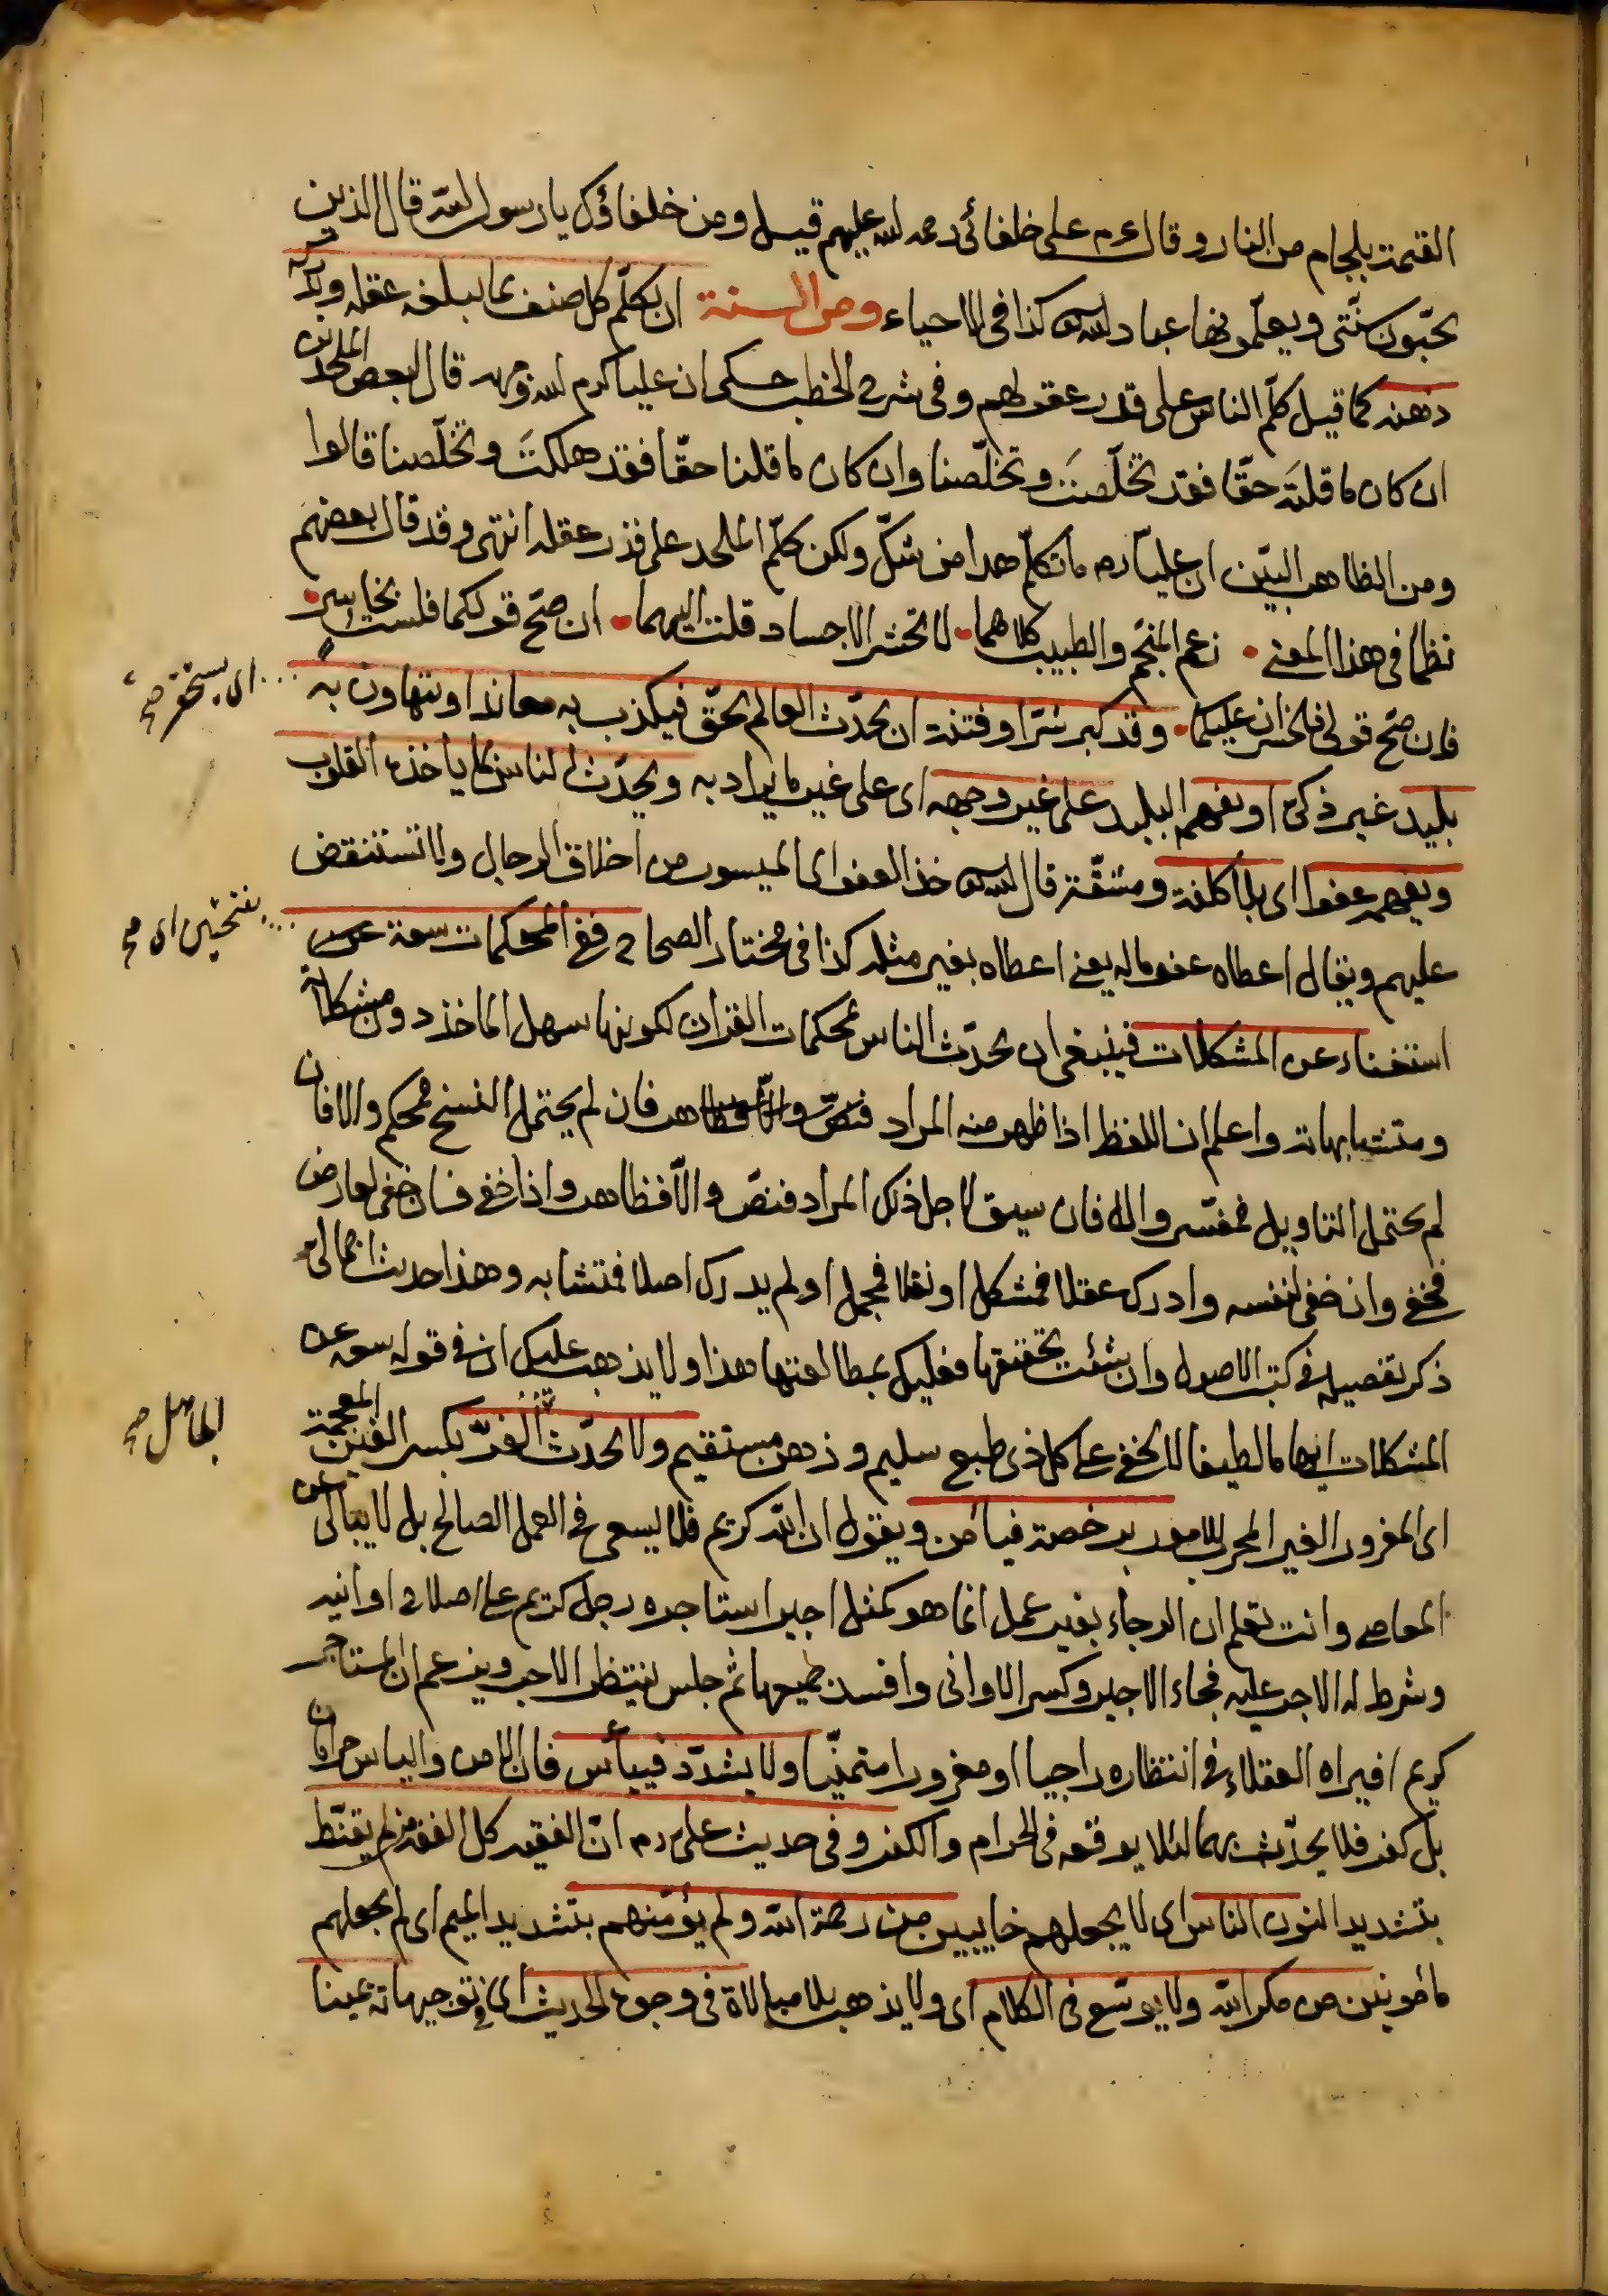 القيمة بلجام من النار وقال ءم على خلفائى رحمه الله عليهم قيل ومن خلفاؤك يا رسول الله قال الذين
يحبّون سنّتى ويعلّمونها عباد الله كذا فى الاحياء ومن السنة ان يكلّم كل صنف بما يبلغه عقله ويدركه
ذهنه كما قيل كلّم الناس على قدر عقولهم وفى شرح الخطب حكى ان عليا كرم الله وجهه قال لبعض الملحدين
ان كان ما قلتَه حقّا فقد تخلّصتَ وتخلّصنا وان كان ما قلنا حقّا فقد هلكتَ وتخلّصنا قالوا
ومن الظاهر البيّن ان عليّا رم ما تكلّم هذا من شكّ ولكن كلّم الملحد على قدر عقله انتهى وقد قال بعضهم
نظما فى هذا المعنى • زعم المنجّم والطبيب كلاهما • لا تحشر الاجساد قلت اليهما • ان صحّ قولكما فلست بخاسر •
فان صحّ قولى فالخسران عليكما • وقد كبر شرّا وفتنة ان يحدّث العالم بحقّ فيكذب به معاندا ويتهاون به
اى يستحقر صح
بليد غير ذكى او يفهم البليد على غير وجهه اى على غير ما يراد به ويحدّث الناس بما يأخذه القلوب
ويفهمه عفوا اى بلا كلفة ومشقّة قال الله خذ العفو اى الميسور من اخلاق الرجال ولا تستنقض
عليهم ويقال اعطاه عفو ماله يعنى اعطاه بغير مثله كذا فى مختار الصحاح ففى المحكمات سعة عن
بفتحتين اى صح
استغناء عن المشكلات فينبغى ان يحدّث الناس بمحكمات القرآن لكونها سهل المأخذ دون مشكلاته
ومتشابهاته واعلم ان اللفظ اذا ظهر منه المراد فان لم يحتمل النسخ فمحكم والا فان
لم يحتمل التاويل فمفسّر والا فان سيق لاجل ذلك المراد فنصّ والّا فظاهر واذا خفى فان خفى لعارض
فخفى وان خفى لنفسه وادرك عقلا فمشكل او نقلا فمجمل او لم يدرك اصلا فمتشابه وهذا حديث اجمالى
ذكر تفصيله فى كتب الاصول وان شئت تحقيقها فعليك بمطالعتها هذا ولا يذهب عليك ان فى قوله سعة عن
المشكلات ايهاما لطيفا لا يخفى على كل ذى طبع سليم وذهن مستقيم ولا يحدّث الغرّ بكسر الغين المعجمة
الجاهل صح
اى المغرور الغير المجرب للامور برخصة فيأمن ويقول ان الله كريم فلا يسعى فى العمل الصالح بل لا يبالى عن
المعاصى وانت تعلم ان الرجاء بغير عمل انما هو كمثل اجير استاجره رجل كريم على اصلاح اوانيه
وشرط له الاجر عليه فجاء الاجير وكسر الاوانى وافسد جميعها ثم جلس ينتظر الاجر ويزعم ان المستاجر
كريم افيراه العقلاء فى انتظاره راجيا او مغرورا متمنّيا ولا يشدّد فييأس فان الامن والياس حرامان
بل كفر فلا يحدّث بهما لئلا يوقعه فى الحرام والكفر وفى حديث على رم انّ الفقيه كل الفقه من لم يقنّط
بتشديد النون الناس اى لا يجعلهم خايبين من رحمة الله ولم يؤمّنهم بتشديد الميم اى لم يجعلهم
مأمونين من مكر الله ولا يوسّع فى الكلام اى ولا يذهب بلا مبالاة فى وجوه الحديث اى فى توجيهاته يمينا